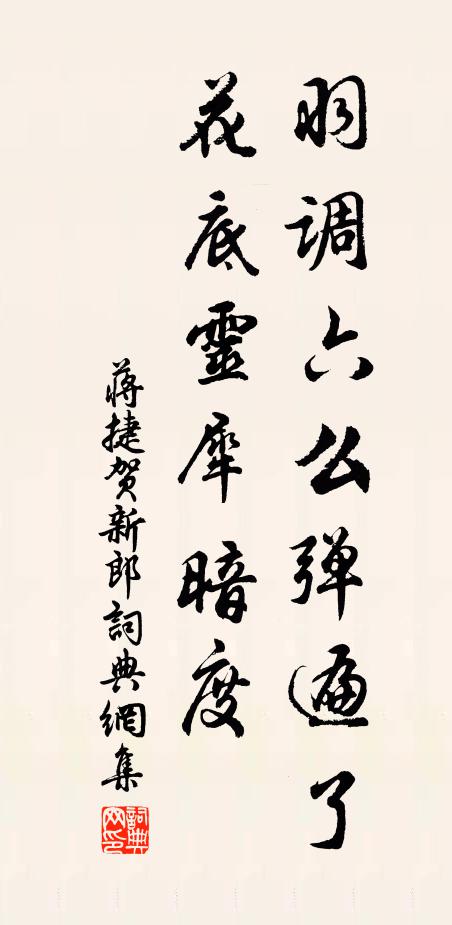 羽调六么弹遍了
花底靈犀暗度
蒋捷贺新郎詞典網集
詞典网印